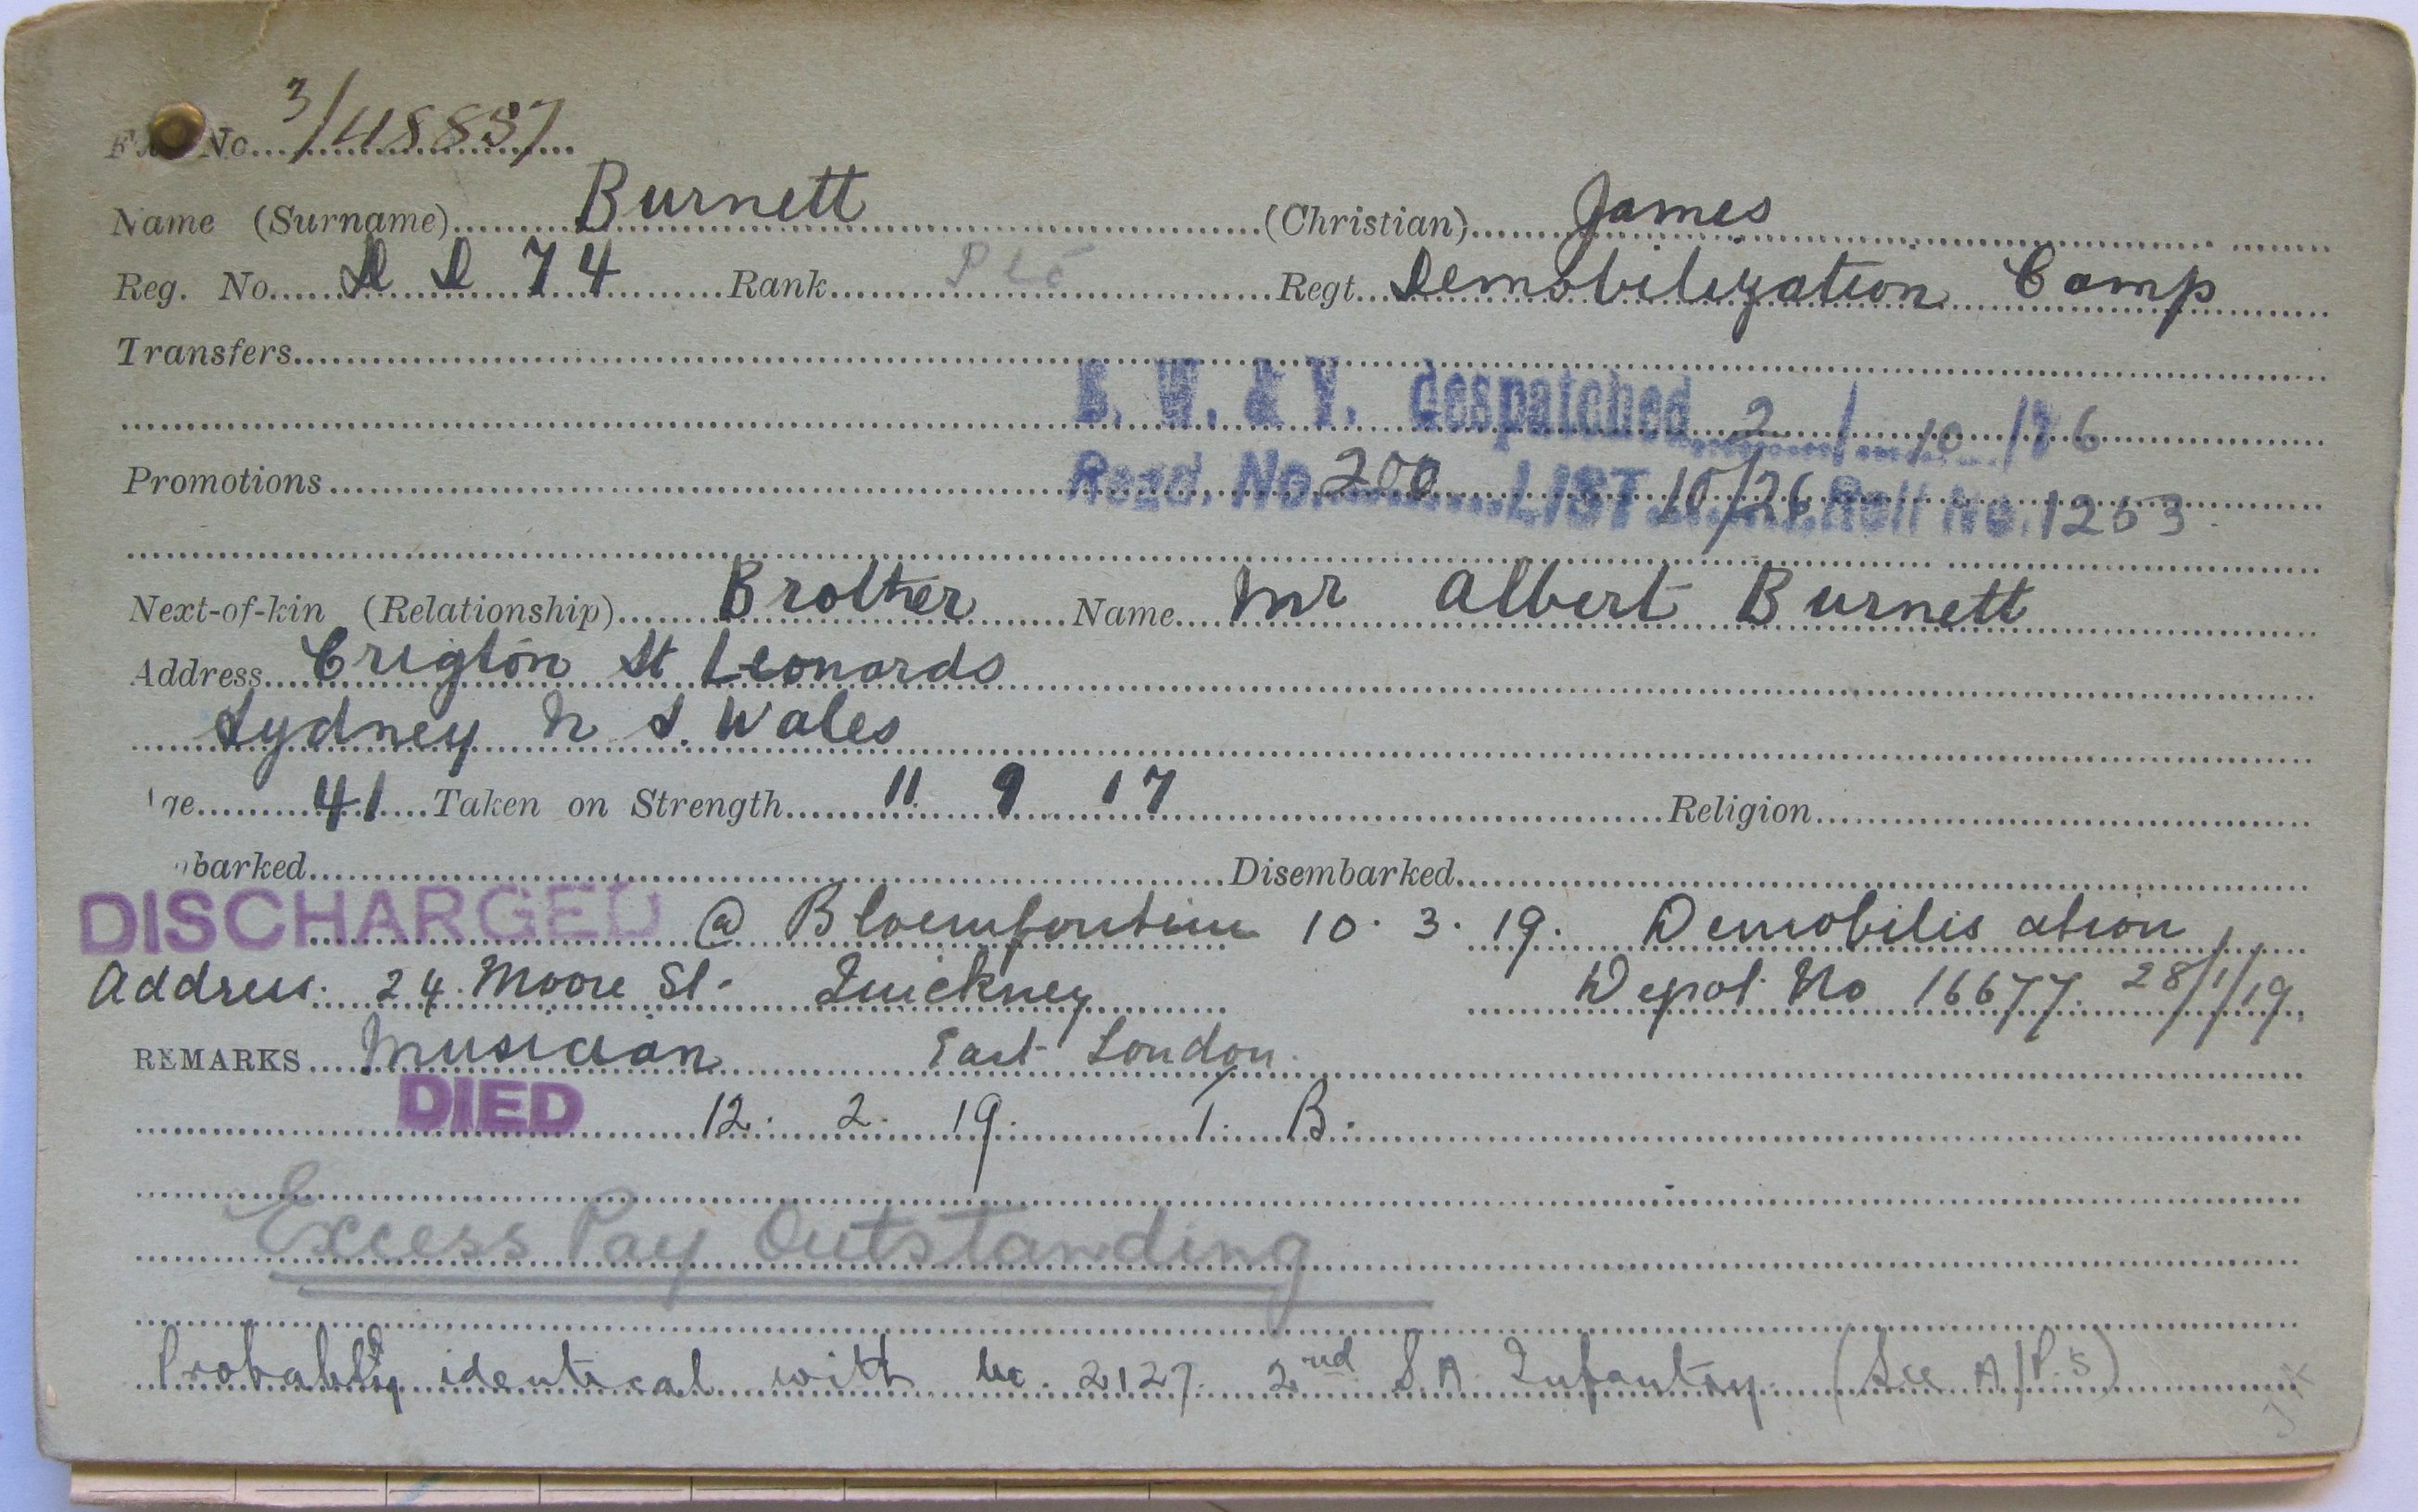 No. 3/48837
Name (Surname) Burnett (Christian) James
Reg. No. D D 74 Rank Pte Regt. Demobilization Camp
Transfers
B. W. & V. despatched 2/10/26
Promotions Regd. No. 200 LIST 10/26 Roll No. 1253
Next-of-kin (Relationship) Brother Name Mr Albert Burnett
Address Crigton St Leonards
Sydney N S. Wales
ge 41 Taken on Strength 11 9 17 Religion
barked Disembarked
DISCHARGED @ Bloemfontein 10. 3. 19. Demobilisation
Address. 24 Moore St. Quickney Depot No 16677. 28/1/19
REMARKS Musician East London.
DIED 12. 2. 19. T. B.
Excess Pay Outstanding
Probably identical with No. 2127. 2nd S.A. Infantry. (See A/P.s)